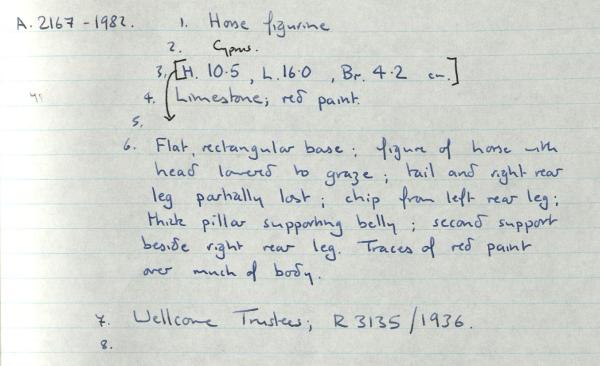 A. 2167-1982. 1. Horse figurine
2. Cyprus.
3. [H. 10.5, L. 16.0, Br. 4.2 cm.]
4. Limestone; red paint.
5.
6. Flat, rectangular base; figure of horse with
head lowered to graze; tail and right rear
leg partially lost; chip from left rear leg;
thick pillar supporting belly; second support
beside right rear leg. Traces of red paint
over much of body.
7. Wellcome Trustees; R 3135/1936.
8.